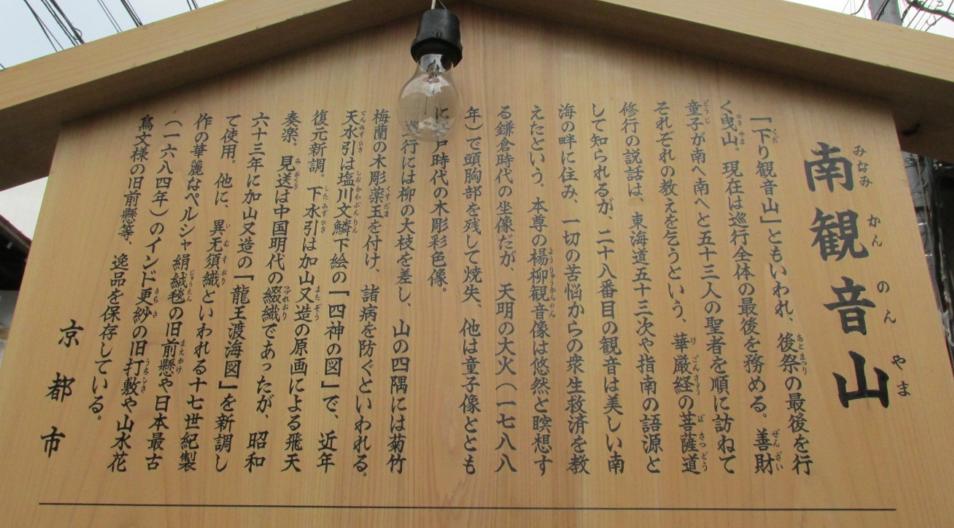 南観音山
みなみ かん のん やま
「下り観音山」ともいわれ、後祭の最後を行
く曳山。現在は巡行全体の最後を務める。善財
童子が南へ南へと五十三人の聖者を順に訪ねて
それぞれの教えを乞うという、華厳経の菩薩道
修行の説話は、東海道五十三次や指南の語源と
して知られるが、二十八番目の観音は美しい南
海の畔に住み、一切の苦悩からの衆生救済を教
えたという。本尊の楊柳観音像は悠然と瞑想す
る鎌倉時代の坐像だが、天明の大火(一七八八
年)で頭胸部を残して焼失、他は童子像ととも
に戸時代の木彫彩色像。
巡行には柳の大枝を差し、山の四隅には菊竹
梅蘭の木彫薬玉を付け、諸病を防ぐといわれる。
天水引は塩川文鱗下絵の「四神の図」で、近年
復元新調、下水引は加山又造の原画による飛天
奏楽、見送は中国明代の綴織であったが、昭和
六十三年に加山又造の「龍王渡海図」を新調し
て使用。他に、異无須織といわれる十七世紀製
作の華麗なペルシャ絹絨毯の旧前懸や日本最古
(一六八四年)のインド更紗の旧打敷や山水花
鳥文様の旧前懸等、逸品を保存している。
京都市